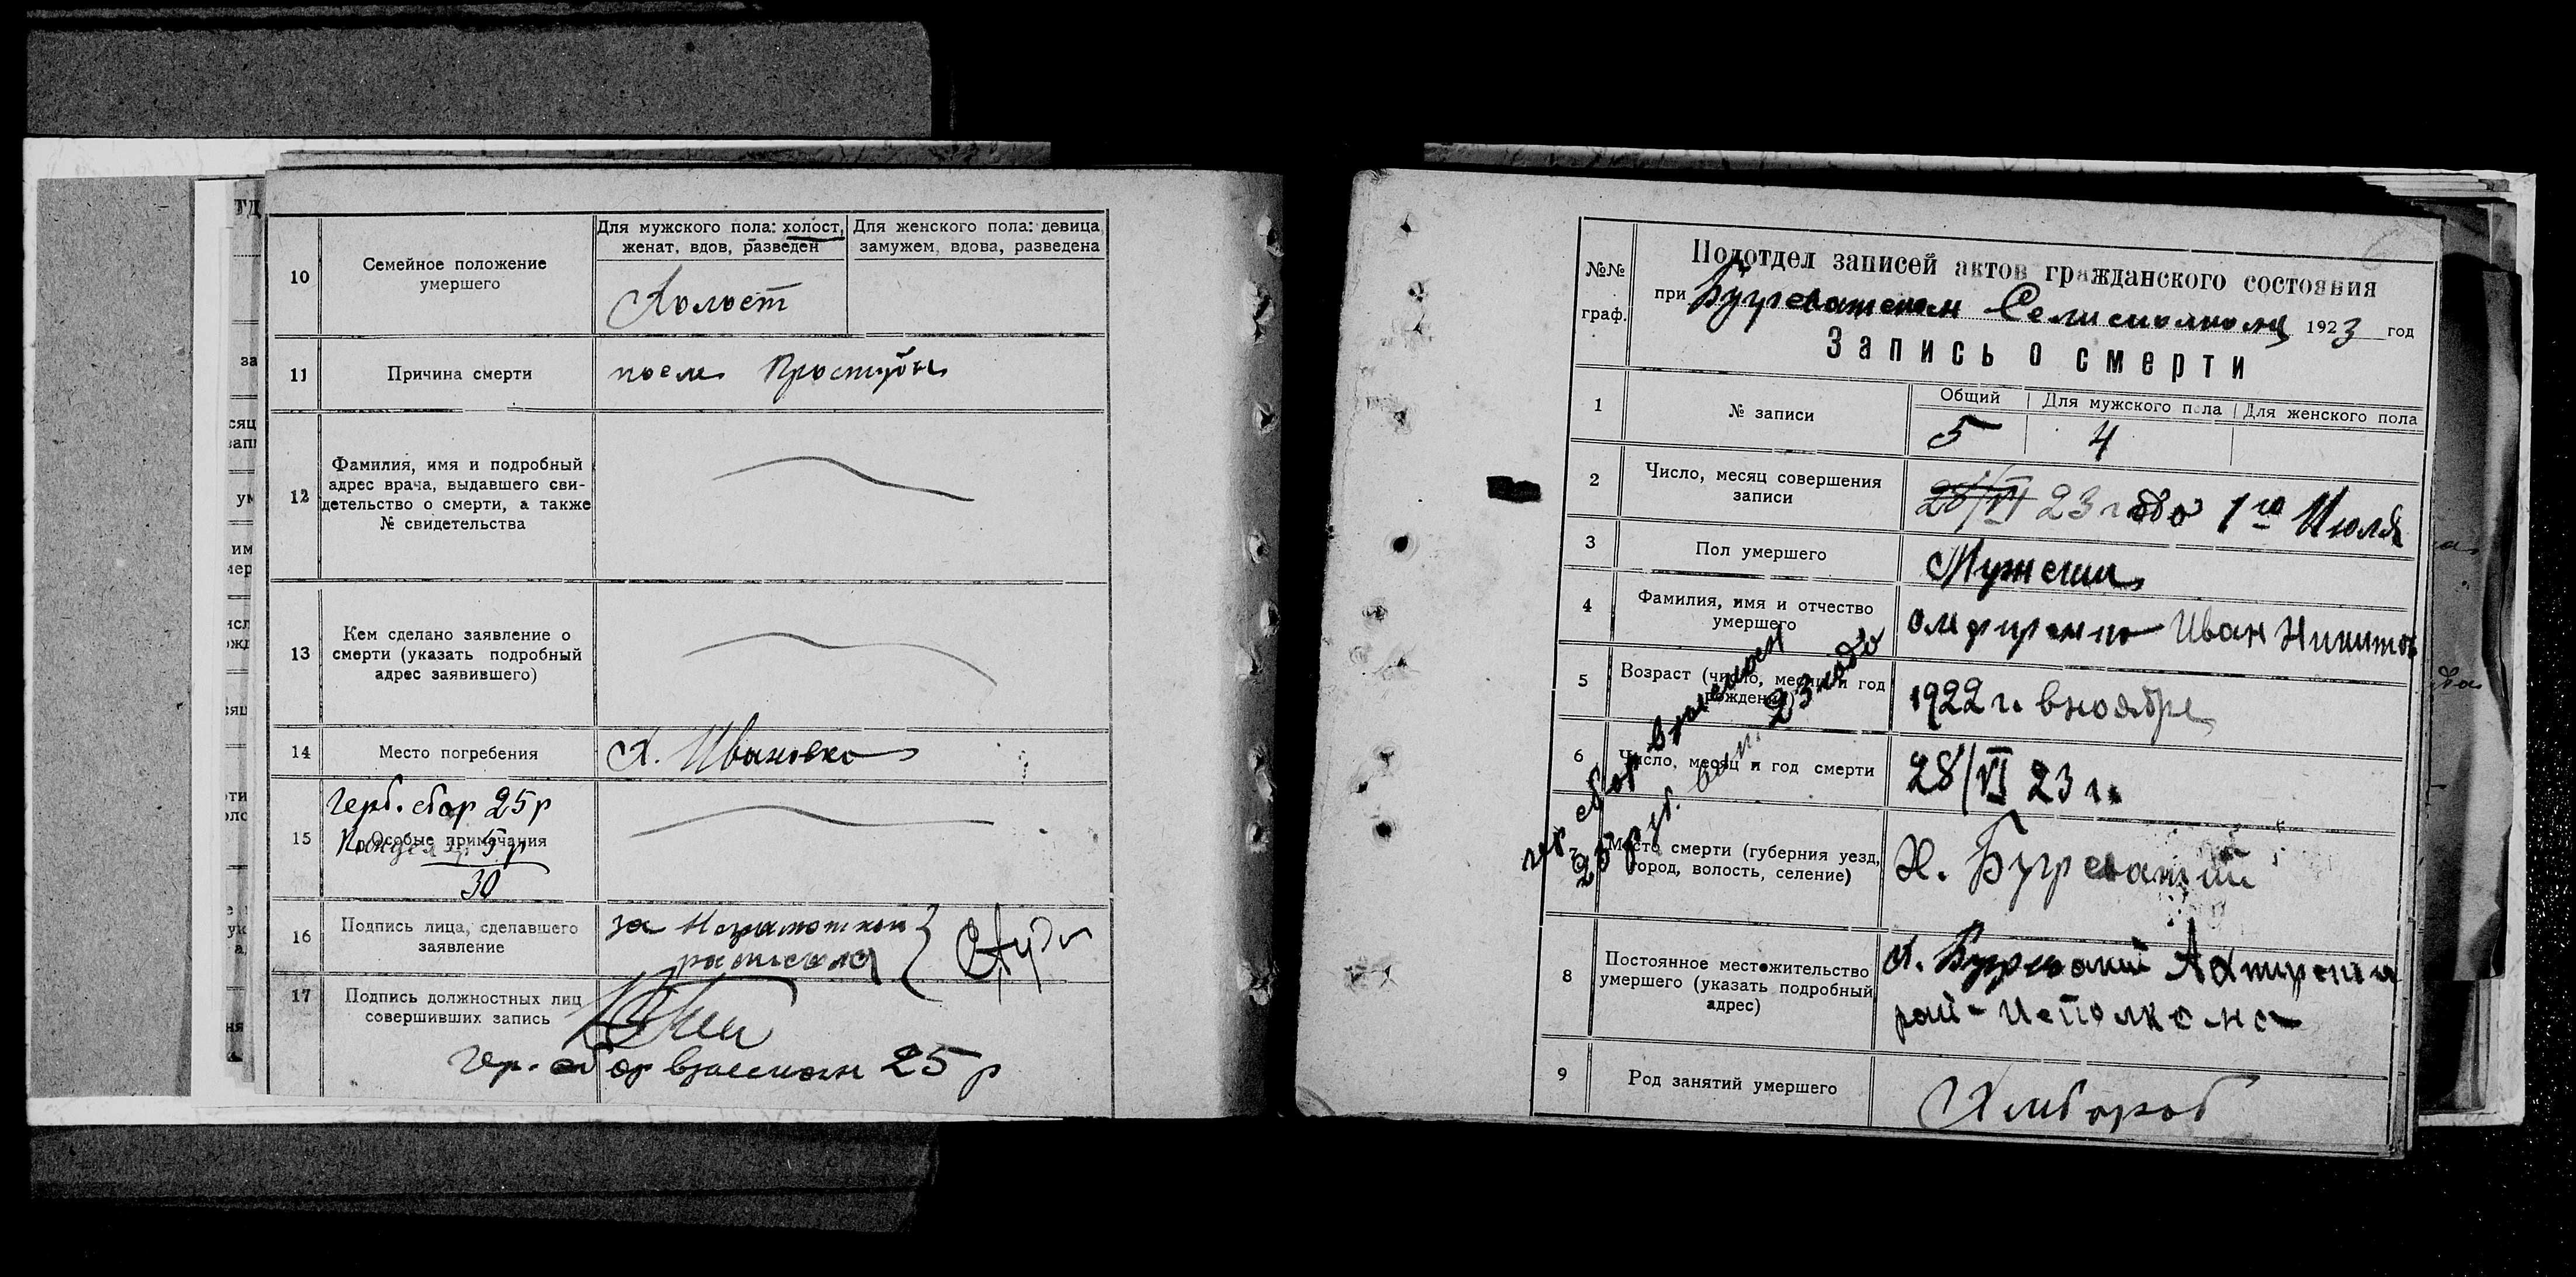 10
Семейное положение
умершего
Для мужского пола: холост,
женат, вдов, разведен
Для женского пола: девица
замужем, вдова, разведена
Холост
11
Причина смерти
12
Фамилия, имя и подробный
адрес врача, выдавшего сви-
детельство о смерти, а также
№ свидетельства
13
Кем сделано заявление о
смерти (указать подробный
адрес заявившего)
14
Место погребения
Х. Ивановка
Герб. сбор 25 р
15
Особые примечания
5 р
30
16
Подпись лица, сделавшего
заявление
за
17
Подпись должностных лиц
совершивших запись
Гер. сбор взыскан 25 р
№№
граф.
Подотдел записей актов гражданского состояния
при 1923 год
Запись о смерти
1
№ записи
Общий
Для мужского пола
Для женского пола
5
4
2
Число, месяц совершения
записи
28/VI 23 года 1го Июля
3
Пол умершего
Мужской
4
Фамилия, имя и отчество
умершего
Иван Никитов
5
Возраст (число, месяц и год
рождения)
1922 г. в ноябре
6
Число, месяц и год смерти
28/VI 23 г.
Место смерти (губерния уезд,
город, волость, селение)
Х. Бугреватый
8
Постоянное местожительство
умершего (указать подробный
адрес)
х. Бугреватый
рай-Исполкома
9
Род занятий умершего
Хлебороб